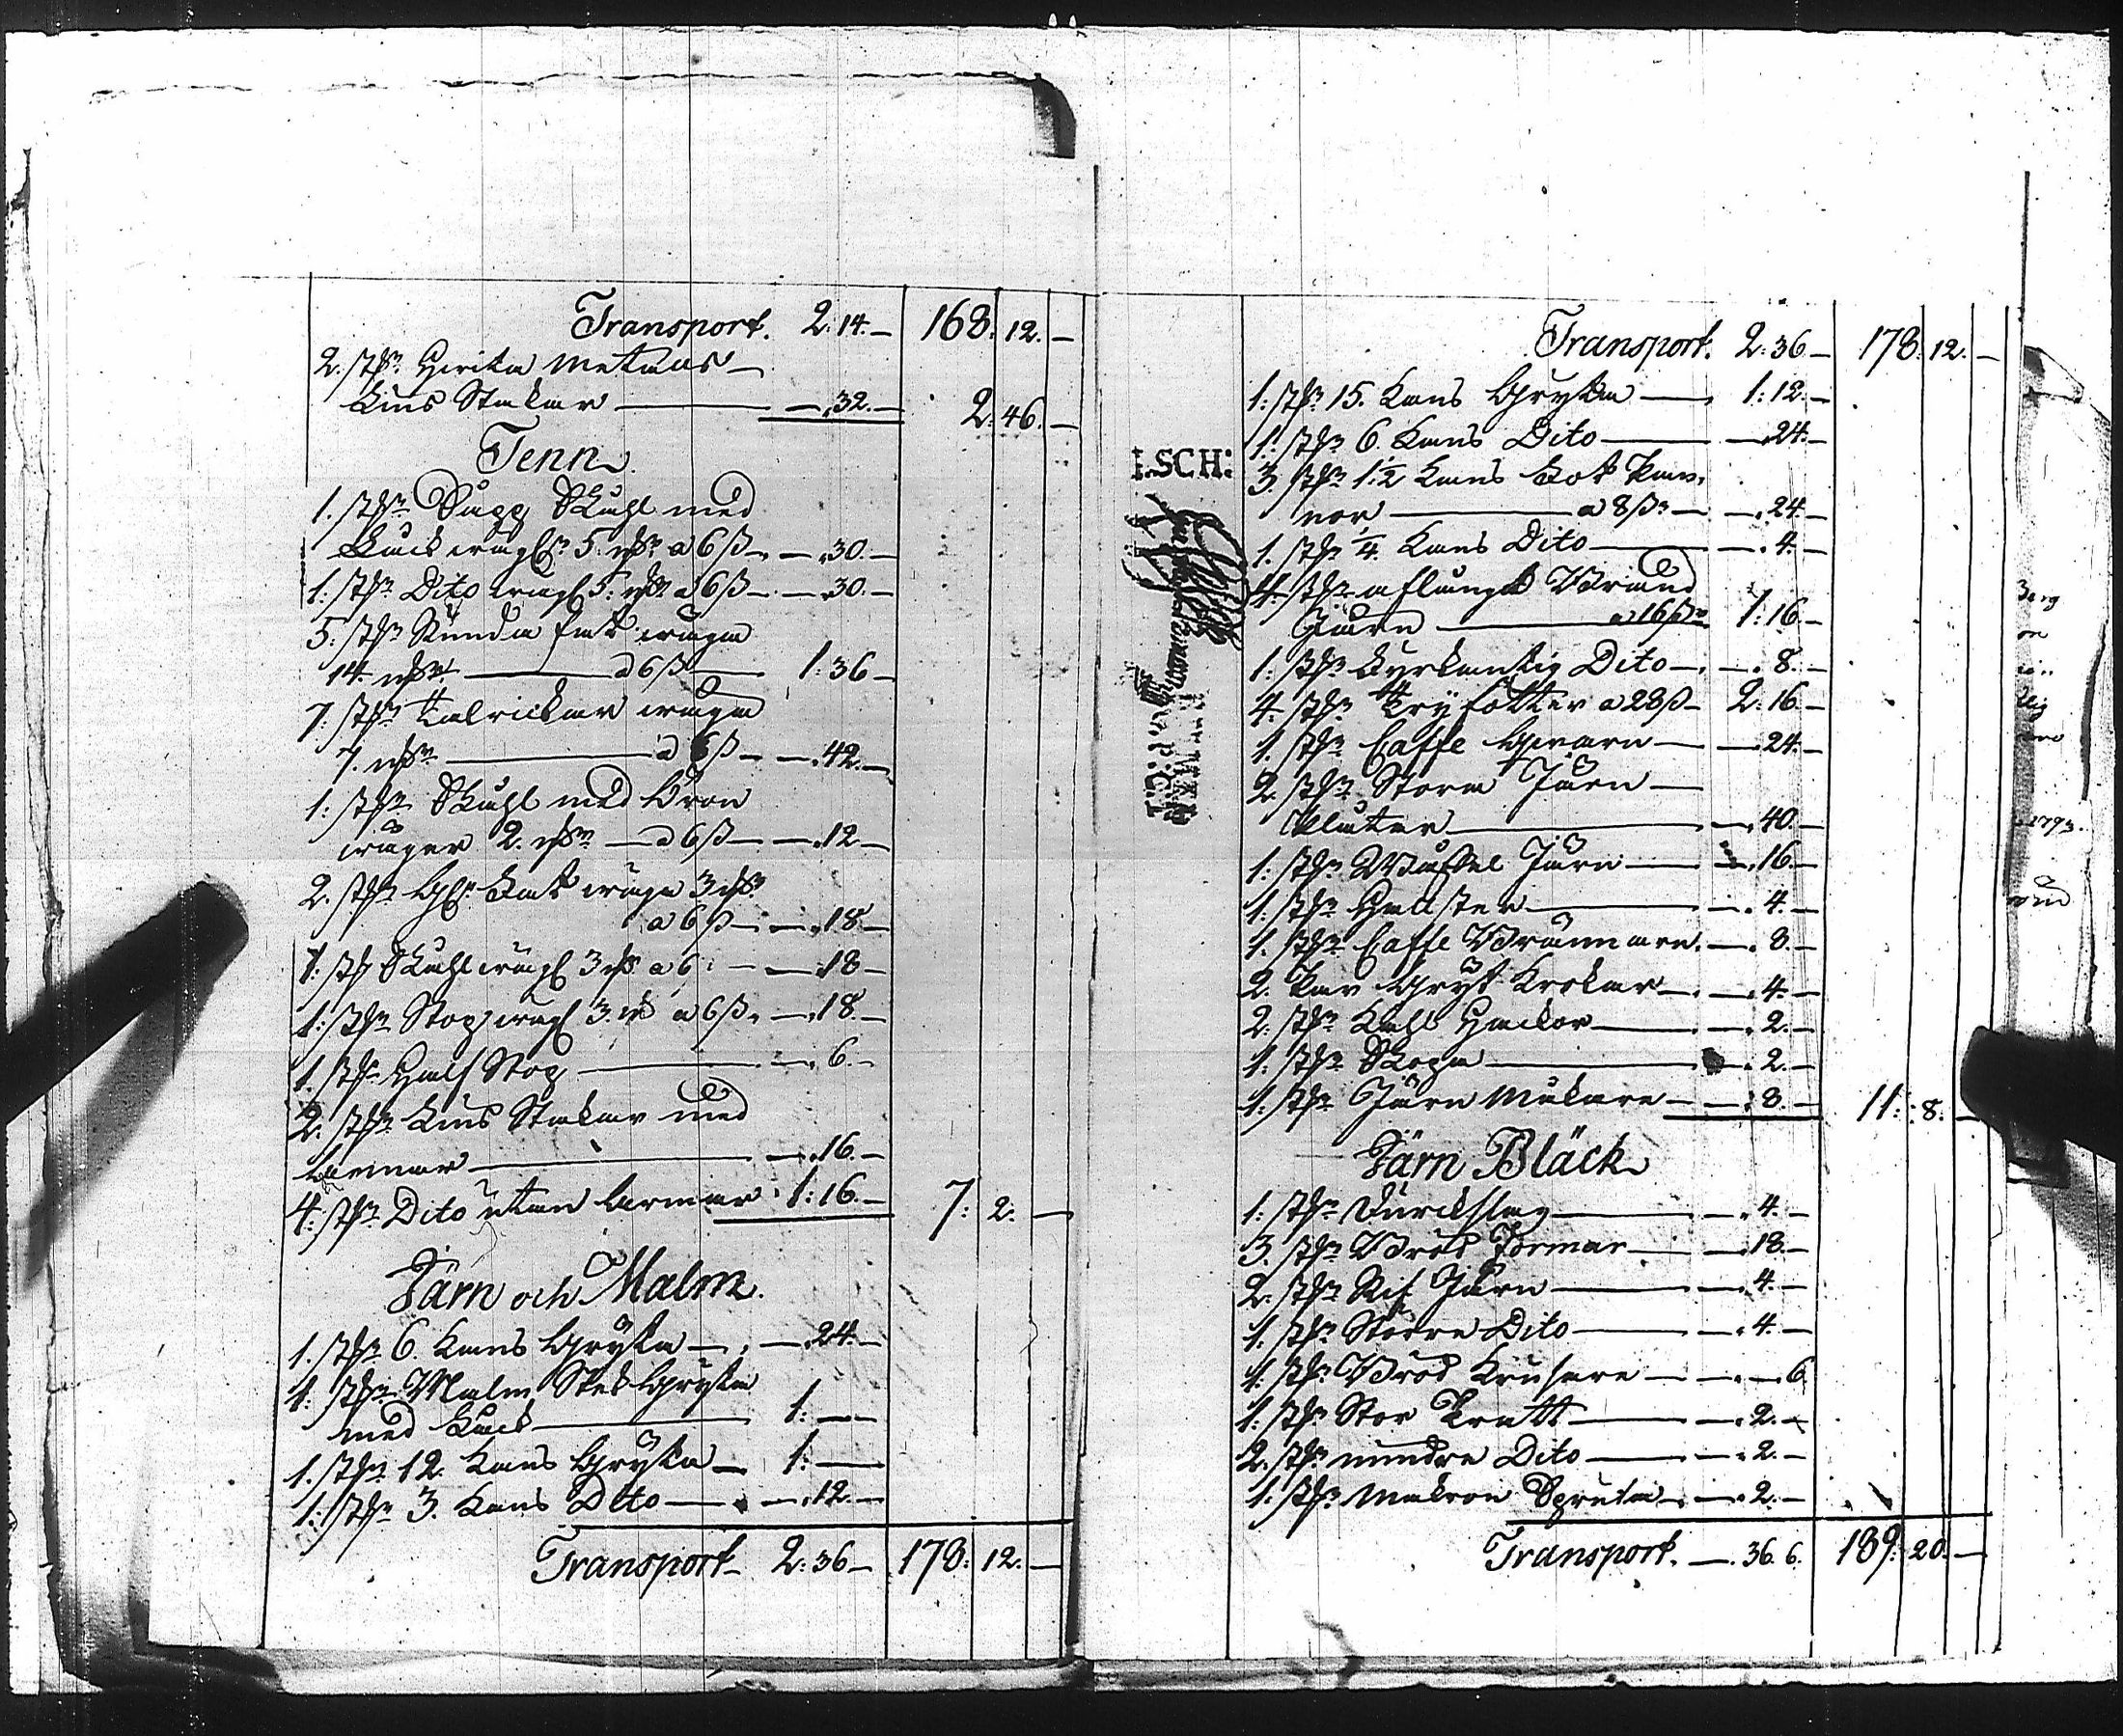 Transport. 2. 14. — 168. 12. —
2. st:r Hvita Metals —
Lius Stakar — —. 32. — 2. 46. —
Tenn
1. st:r Supp Skåhl med
Låck a 6 ß — —. 30. —
1: st:r Dito a 6 ß — —. 30. —
5: st:r Runda fat wäga
14 — a 6 ß — 1: 36 —
7: st:r Talrickar wäga
7. — a 6 ß — —. 42. —
1: st:r Skåhl med Öron
wäger 2. — a 6 ß — —. 12 —
2. st:r fat wäga 3
a 6 ß — —. 18 —
1: st Skåhl 3 a 6: — —. 18 —
1: st:r Stop 3. a 6 ß. —. 18. —
1. st:r Half Stop — —. 6. —
2. st:r Lius Stakar med
Larmar — —. 16. —
4: st:r Dito utan Larmar 1: 16. — 7: 2. —
Järn och Malm.
1. st:r 6. Kans Gryta — —. 24. —
1. st:r Malm Stek Gryta
med Låck — 1: — —
1. st:r 12. Kans Gryta — 1: —
1: st:r 3. Kans Dito — —. 12. —
Transport — 2: 36 — 178: 12. —
Transport. 2: 36 — 178. 12. —
1: st:r 15. Kans Gryta — 1: 12. —
1: st:r 6. Kans Dito — —. 24. —
3. st:r 1 1/2 Kans Kok Pan-
nor — a 8 ß — —. 24. —
1. st:r 1/4. Kans Dito — —. 4. —
4. st:r aflånga Brand
Järn — a 16 ß — 1: 16 —
1: st:r fyrkantig Dito — —. 8. —
4. st:r Tryfötter a 28 ß — 2: 16. —
1. st:r Caffe Qwarn — —. 24. —
2. st:r Stora Järn —
Plåtar — —. 40. —
1: st:r Våffel Järn — —. 16. —
1: st:r Halster — —. 4. —
1. st:r Caffe Brännare. —. 8. —
2. Par Gryt Krokar — —. 4. —
2: st:r Kåhl Hackor — —. 2. —
1: st:r Skopa — —. 2. —
1: st:r Järn Makare — —. 8. — 11: 8. —
Järn Bläck
1: st:r Durckslag — —. 4. —
3. st:r Bröd Formar — —. 18. —
2. st:r Rif Järn — —. 4. —
1: st:r Större Dito — —. 4. —
1. st:r Bröd Krusare — —. — 6
1: st:r Stor Tratt — —. 2. —
2. st:r mindre Dito — —. 2. —
1: st:r Makron Spruta — —. 2. —
Transport. —. 36. 6. 189: 20. —